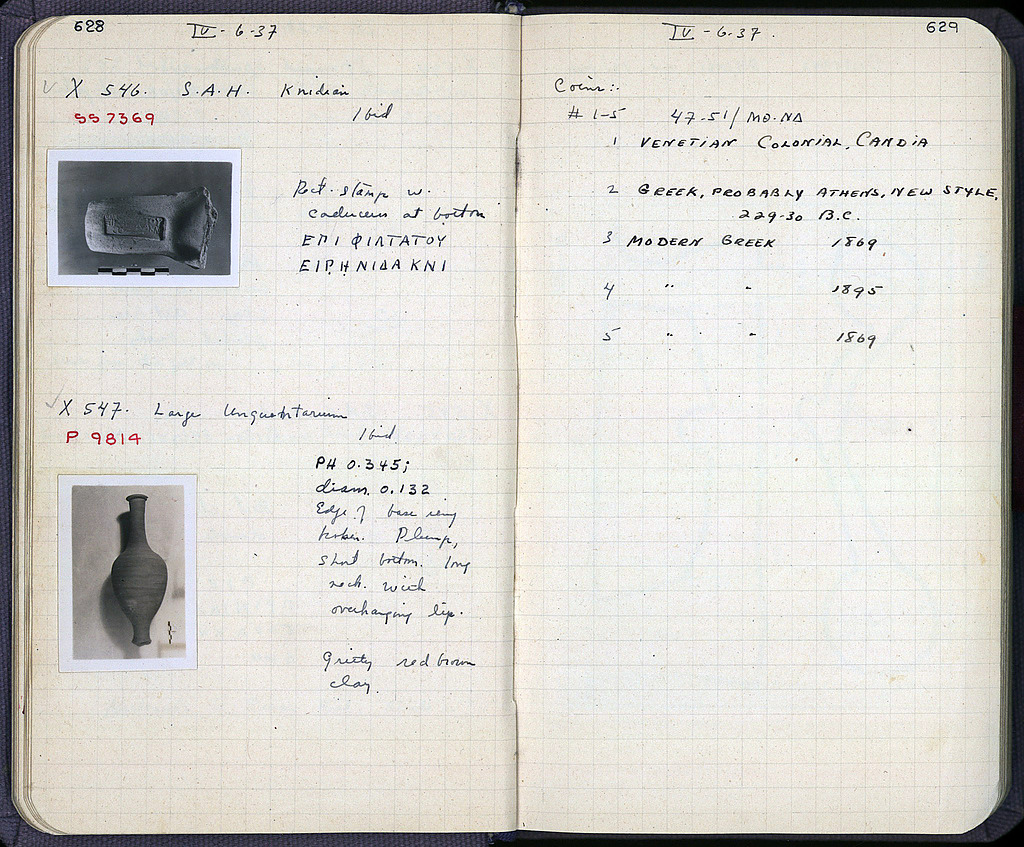 628
IV - 6-37
X 546. S.A.H. Knidian
SS 7369
Ibid
Rect. stamp w.
caduceus at bottom
ΕΠΙ ΦΙΛΤΑΤΟΥ
ΕΙΡΗΝΙΔΑ ΚΝΙ
X 547. Large Unguentarium
P 9814
Ibid.
PH 0.345;
diam. 0.132
Edge of base ring
broken. Plump,
short bottom. long
neck. with
overhanging lip.
Gritty red brown
clay.
IV - 6-37.
629
Coins:.
# 1-5 47-51/ΜΘ-ΝΔ
1 VENETIAN COLONIAL, CANDIA
2 GREEK, PROBABLY ATHENS, NEW STYLE,
229-30 B.C.
3 MODERN GREEK 1869
4 " " 1895
5 " " 1869